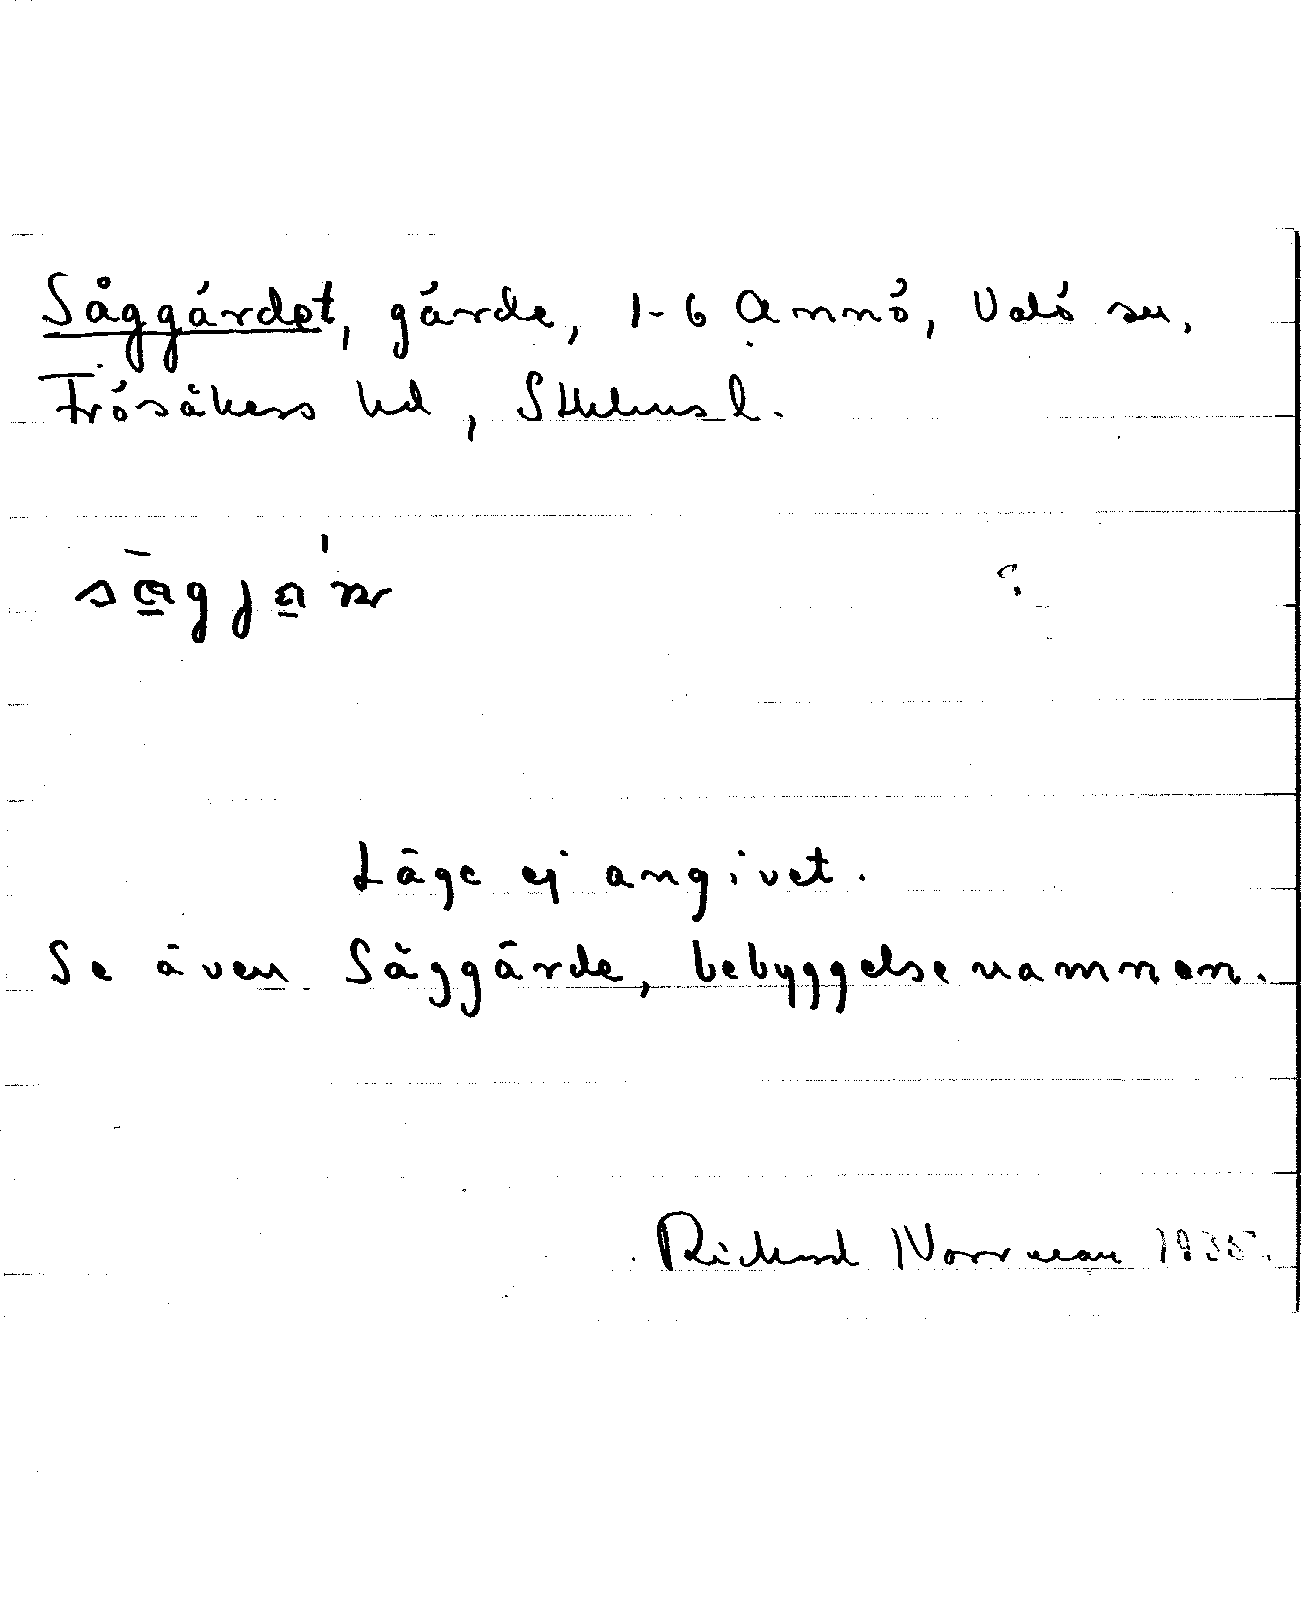 Såggärdet, gärde, 1-6 Annö, Valö sn,
Frösåkers hd, Sthlms l.
Läge ej angivet.
Se även Såggärde, bebyggelsenamnen.
Rickard Norrman 1935.